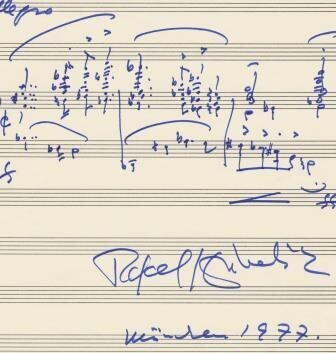 llegro
ff
Rafael Kubelik
München 1977.